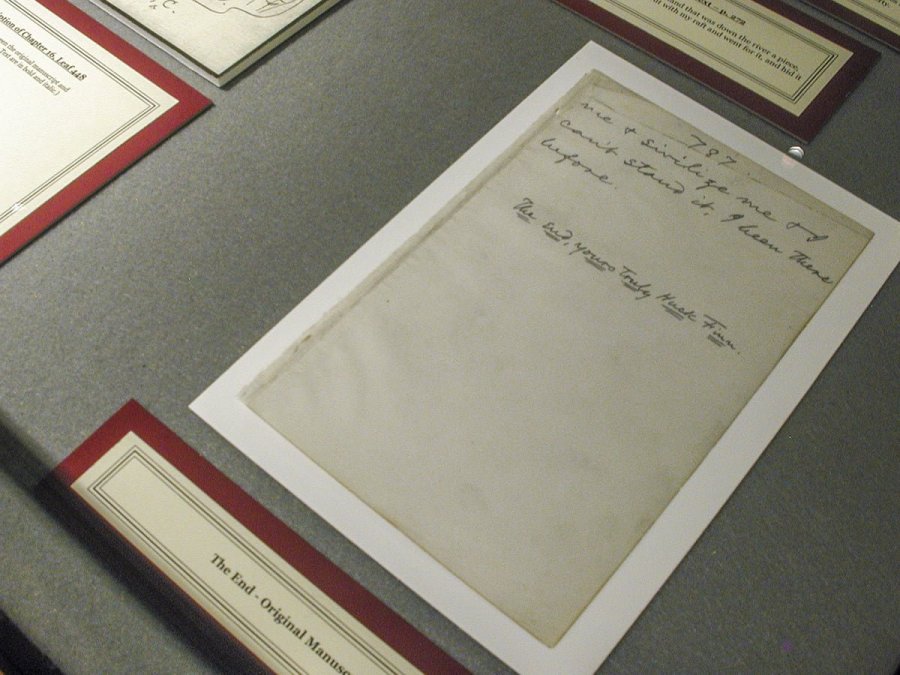 of Chapter 16, Leaf 448
the original manuscript and
Text are in bold and italic.)
C.
p. 272
and that was down the river a piece,
with my raft and went for it, and hid it
787.
me & sivilize me & I
can't stand it. I been there
before.
The end, yours truly Huck Finn.
The End - Original Manusc